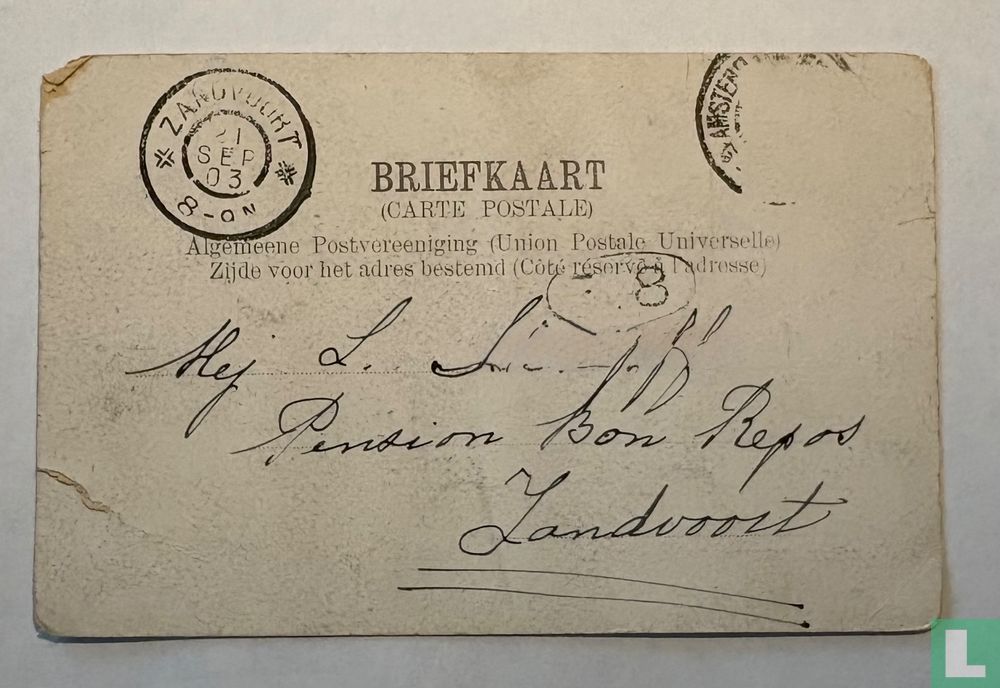 ZANDVOORT
SEP
03
8-9N
AMSTERD
BRIEFKAART
(CARTE POSTALE)
Algemeene Postvereeniging (Union Postale Universelle)
Zijde voor het adres bestemd (Côté réservé à l'adresse)
8
Mej L.
Pension Bon Repos
Zandvoort
L